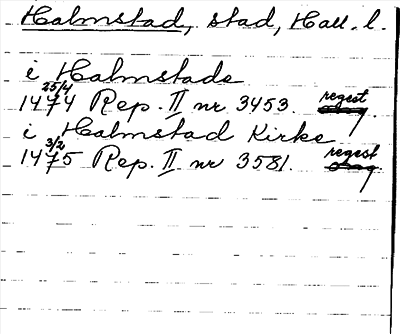 Halmstad, stad, Hall. l.
i Halmstade
1474 25/4 Rep. II nr 3453. regest
i Halmstad Kirke
1475 3/2 Rep. II nr 3581. regest